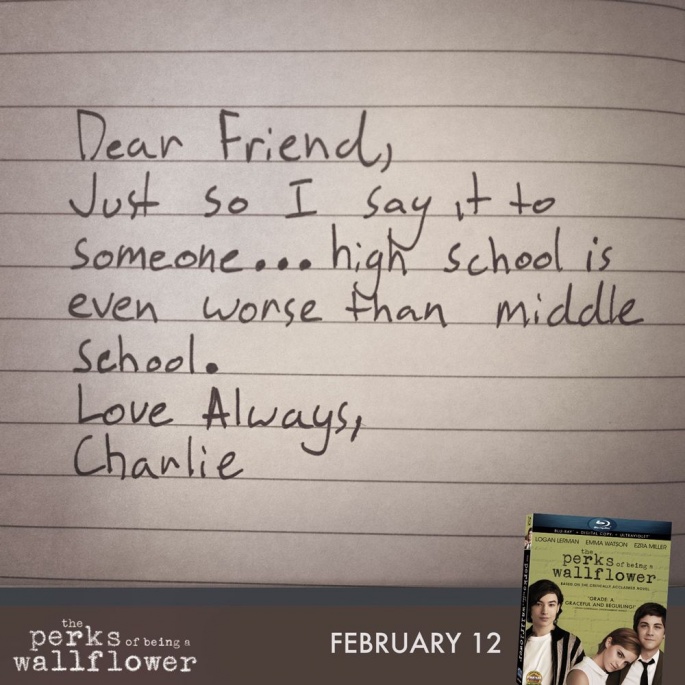 Dear Friend,
Just so I say it to
someone... high school is
even worse than middle
school.
Love Always,
Charlie
the
perks of being a
wallflower
FEBRUARY 12
BLU-RAY + DIGITAL COPY + ULTRAVIOLET
LOGAN LERMAN EMMA WATSON EZRA MILLER
the
perks of being a
wallflower
BASED ON THE CRITICALLY ACCLAIMED NOVEL
"GRADE: A.
GRACEFUL AND BEGUILING!"